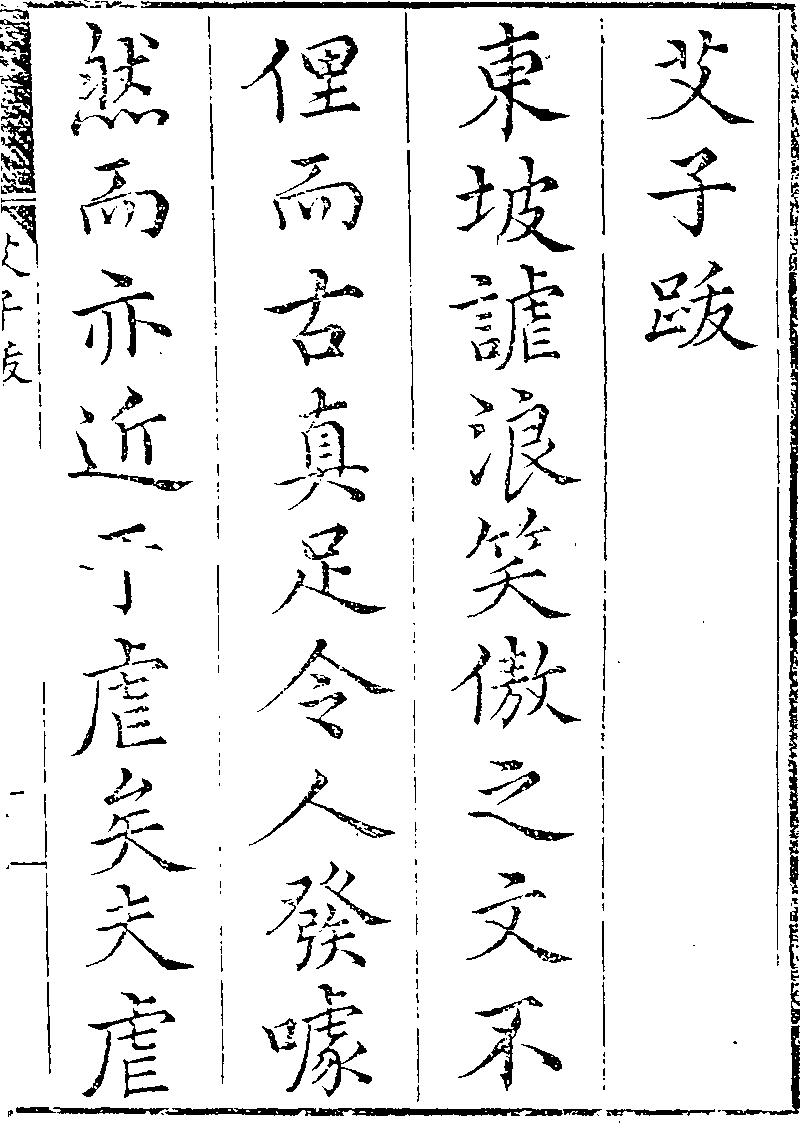 艾子跋
東坡謔浪笑傲之文不
俚而古真足令人發噱
然而亦近乎虐矣夫虐
艾子跋